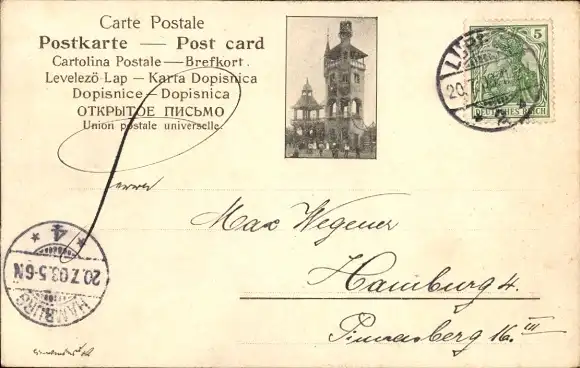 Carte Postale
Postkarte — Post card
Cartolina Postale — Brefkort.
Levelező Lap — Karta Dopisnica
Dopisnice — Dopisnica
ОТКРЫТОЕ ПИСЬМО
Union postale universelle.
5
DEUTSCHES REICH
20.
Herrn
Max Wegener
Hamburg 4.
Pinnasberg 16. III
HAMBURG
20.7.03.5-6N
* 4 *